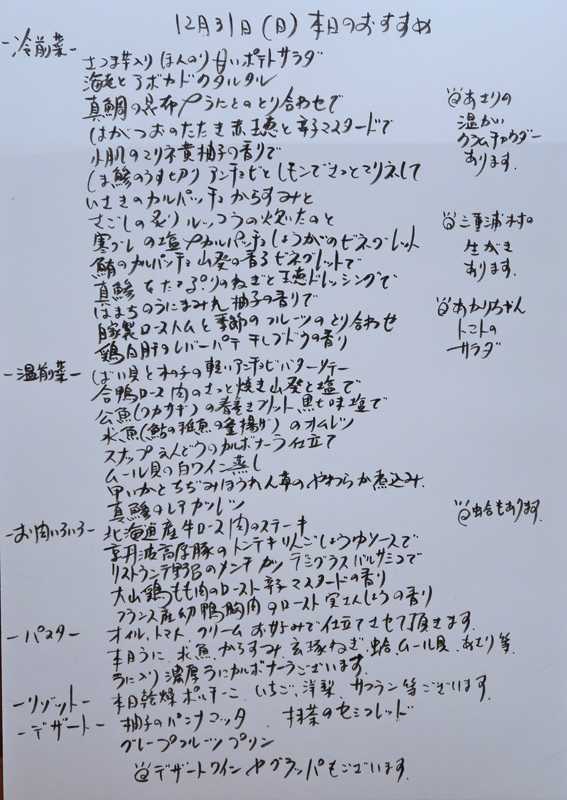 12月31日(日)本日のおすすめ
-冷前菜-
さつま芋入り ほんのり甘いポテトサラダ
海老とアボカドのタルタル
真鯛の昆布〆うにとのとり合わせで
はがつおのたたき赤玉葱と辛子マスタードで
小肌のマリネ黄柚子の香りで
しま鯵のうす切り アンチョビとレモンでさっとマリネして
いさきのカルパッチョ からすみと
さごしの炙り ルッコラの炊いたのと
寒ブリの塩〆カルパッチョ しょうがのビネグレット
鮪のカルパッチョ 山葵の香るビネグレットで
真鯵をたっぷりのねぎと玉葱ドレッシングで
はまちのうにまみれ 柚子の香りで
自家製ローストハムと季節のフルーツのとり合わせ
鶏白肝のレバーパテ 干しブドウの香り
@あさりの
温かい
クラムチャウダー
あります.
@三重浦村の
生がき
あります.
@あかりちゃん
トマトの
サラダ
-温前菜-
ばい貝と木の子の軽いアンチョビバターソテー
合鴨ロース肉のさっと焼き山葵と塩で
公魚(ワカサギ)の春巻きフリット 黒七味塩で
氷魚(鮎の稚魚の釜揚げ)のオムレツ
スナップえんどうのカルボナーラ仕立て
ムール貝の白ワイン蒸し
甲いかとちぢみほうれん草のやわらか煮込み.
真鯵のレアカツレツ
@蛤もあります.
-お肉いろいろ-
北海道産牛ロース肉のステーキ
京丹波高原豚のトンテキりんごしょうゆソースで
リストランテ野呂のメンチカツ デミグラスバルサミコで
大山鶏もも肉のロースト 辛子マスタードの香り
フランス産幼鴨胸肉のロースト実さんしょうの香り
-パスタ-
オイル、トマト、クリーム お好みで仕立てさせて頂きます.
本日うに、氷魚、からすみ、九条ねぎ、蛤、ムール貝、あさり等
うに入り濃厚うにカルボナーラございます.
-リゾット-
本日乾燥ポルチーニ、いちご、洋梨、サフラン等ございます.
-デザート-
柚子のパンナコッタ、抹茶のセミフレッド
グレープフルーツプリン
@デザートワインやグラッパもございます.